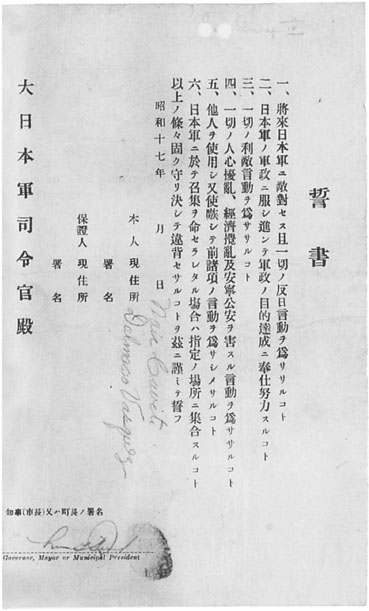 誓書
一、將來日本軍ニ敵對セス且一切ノ反日言動ヲ爲サヽルコト
二、日本軍ノ軍政ニ服シ進ンテ軍政ノ目的達成ニ奉仕努力スルコト
三、一切ノ利敵言動ヲ爲ササルコト
四、一切ノ人心擾亂、經濟攪亂及安寧公安ヲ害スル言動ヲ爲ササルコト
五、他人ヲ使用シ又使嗾シテ前諸項ノ言動ヲ爲サシメサルコト
六、日本軍ニ於テ召集ヲ命セラレタル場合ハ指定ノ場所ニ集合スルコト
以上ノ條々固ク守リ決シテ違背セサルコトヲ茲ニ謹ミテ誓フ
昭和十七年 月 日
本人現住所 Naic Cavite
署名 Dalmaso Vasquez
保證人現住所
署名
大日本軍司令官殿
知事(市長)又ハ町長ノ署名
Governor, Mayor or Municipal President